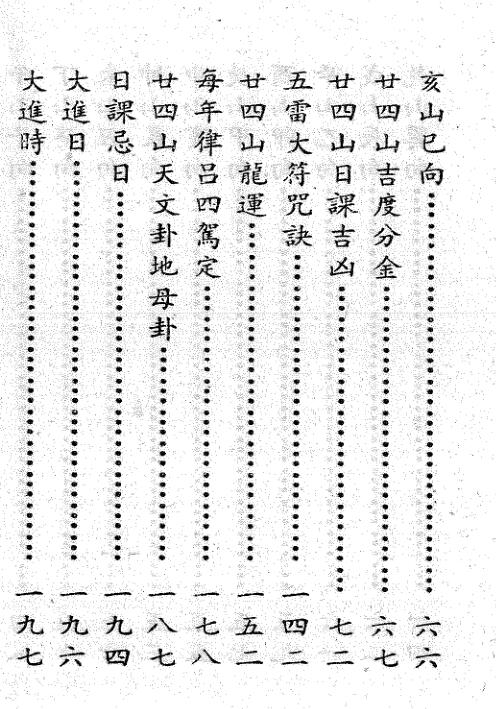 亥山巳向……………………六六
廿四山吉度分金……………………六七
廿四山日課吉凶……………………七二
五雷大符咒訣……………………一四二
廿四山龍運……………………一五二
每年律呂四駕定……………………一七八
廿四山天文卦地母卦……………………一八七
日課忌日……………………一九四
大進日……………………一九六
大進時……………………一九七